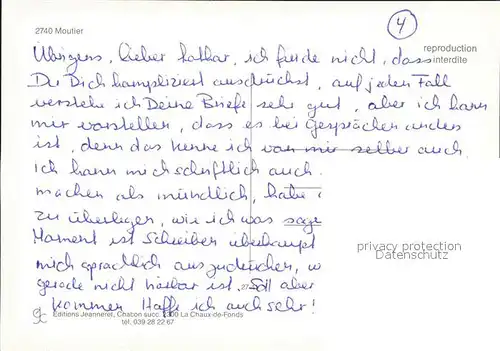 2740 Moutier
4
reproduction
interdite
Übrigens, lieber Lothar, ich finde nicht, dass
Du Dich kompliziert ausdrückst, auf jeden Fall
verstehe ich Deine Briefe sehr gut, aber ich kann
mir vorstellen, dass es bei Gesprächen anders
ist, denn das kenne ich von mir selber auch.
Ich kann mich schriftlich auch
machen als mündlich, habe
zu überlegen, wie ich was sage
Moment ist Schreiben überhaupt
mich sprachlich auszudrücken, w
gerade nicht hörbar ist. Soll aber
kommen. Hoffe ich auch sehr!
privacy protection
Datenschutz
Editions Jeanneret, Chaton succ. 2300 La Chaux-de-Fonds
tél. 039 28 22 67